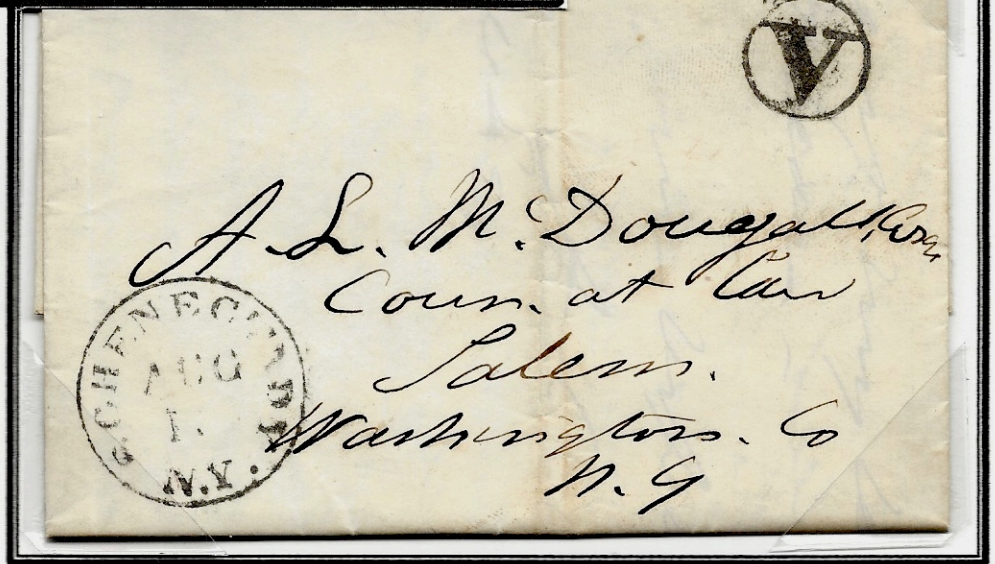 V
A. L. McDougall, Esqr
Coun. at Law
Salem.
Washington. Co
N. Y
SCHENECTADY
AUG
1.
N.Y.